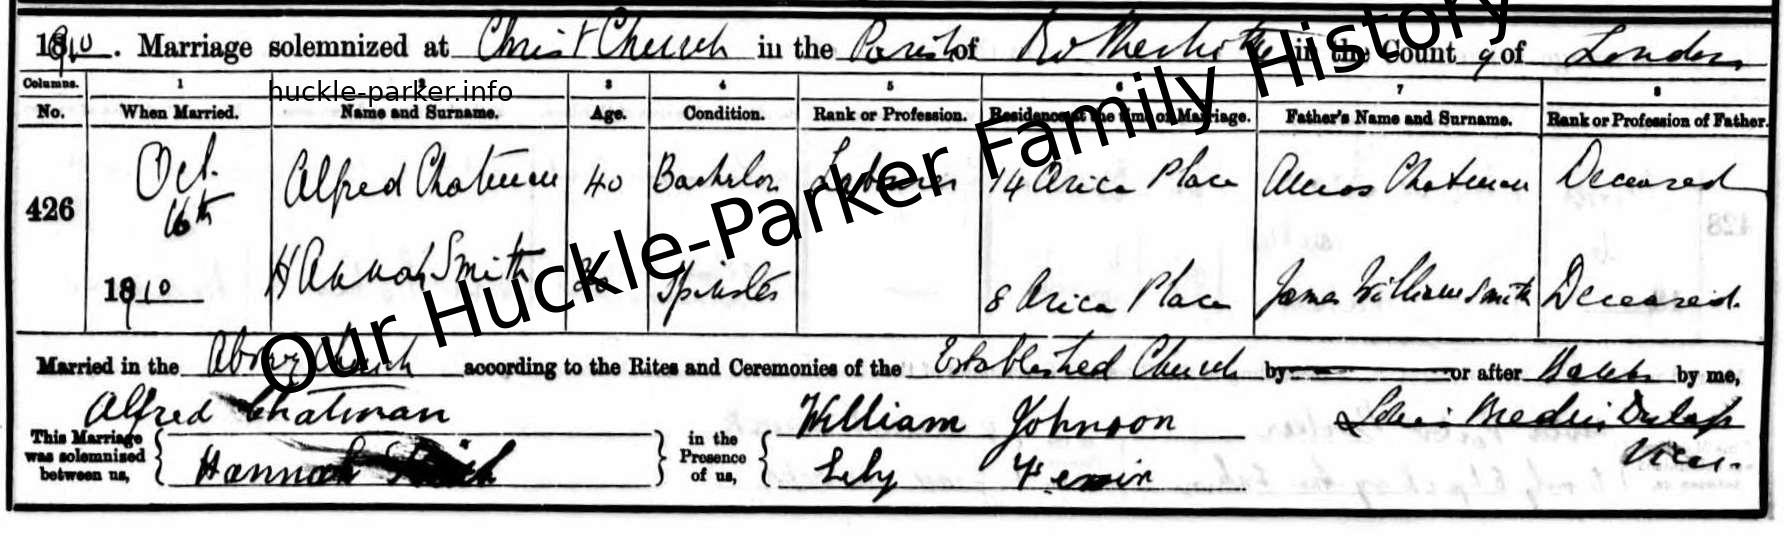 1910. Marriage solemnized at Christ Church in the Parish of Rotherhithe in the County of London
Columns. 1 2 3 4 5 6 7 8
huckle-parker.info
No. When Married. Name and Surname. Age. Condition. Rank or Profession. Residence at the time of Marriage. Father's Name and Surname. Rank or Profession of Father.
426 Oct. 16th 1910 Alfred Chatman 40 Bachelor Labourer 14 Arica Place Amos Chatman Deceased
Hannah Smith Spinster 8 Arica Place James William Smith Deceased.
Our Huckle-Parker Family History
Married in the Above Church according to the Rites and Ceremonies of the Established Church by or after Banns by me,
This Marriage was solemnized between us, Alfred Chatman
Hannah Smith
in the Presence of us, William Johnson
Lily
Vicar.